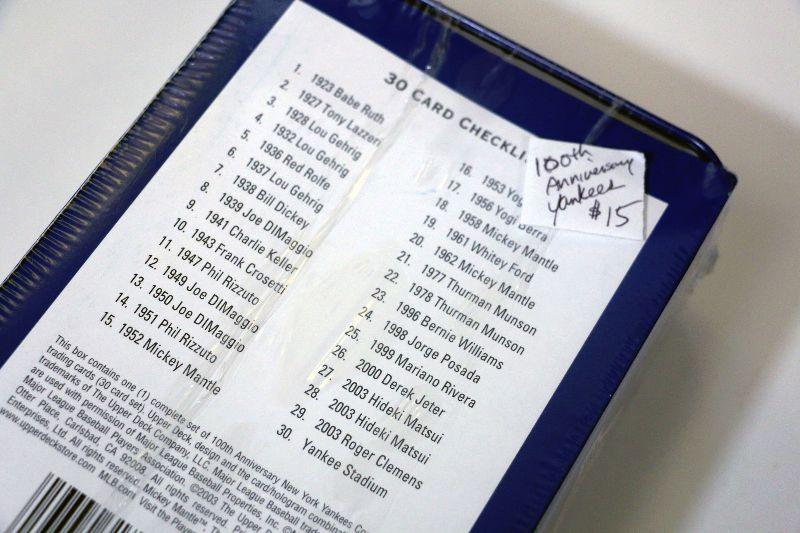 30 CARD CHECKLI
1. 1923 Babe Ruth
2. 1927 Tony Lazzeri
3. 1928 Lou Gehrig
4. 1932 Lou Gehrig
5. 1936 Red Rolfe
6. 1937 Lou Gehrig
7. 1938 Bill Dickey
8. 1939 Joe DiMaggio
9. 1941 Charlie Keller
10. 1943 Frank Crosetti
11. 1947 Phil Rizzuto
12. 1949 Joe DiMaggio
13. 1950 Joe DiMaggio
14. 1951 Phil Rizzuto
15. 1952 Mickey Mantle
16. 1953 Yog
17. 1956 Yogi Berra
18. 1958 Mickey Mantle
19. 1961 Whitey Ford
20. 1962 Mickey Mantle
21. 1977 Thurman Munson
22. 1978 Thurman Munson
23. 1996 Bernie Williams
24. 1998 Jorge Posada
25. 1999 Mariano Rivera
26. 2000 Derek Jeter
27. 2003 Hideki Matsui
28. 2003 Hideki Matsui
29. 2003 Roger Clemens
30. Yankee Stadium
100th
Anniversary
Yankees
$15
This box contains one (1) complete set of 100th Anniversary New York Yankees Co
trading cards (30 card set). Upper Deck, design and the card/hologram combinatio
trademarks of The Upper Deck Company, LLC. Major League Baseball trade
are used with permission of Major League Baseball Properties, Inc. ©M
Major League Baseball Players Association. ©2003 The Upper
Otter Place, Carlsbad, CA 92008. All rights reserved. Pr
Enterprises, Ltd. All rights reserved. Mickey Mantle™. Th
www.upperdeckstore.com MLB.com Visit the Player